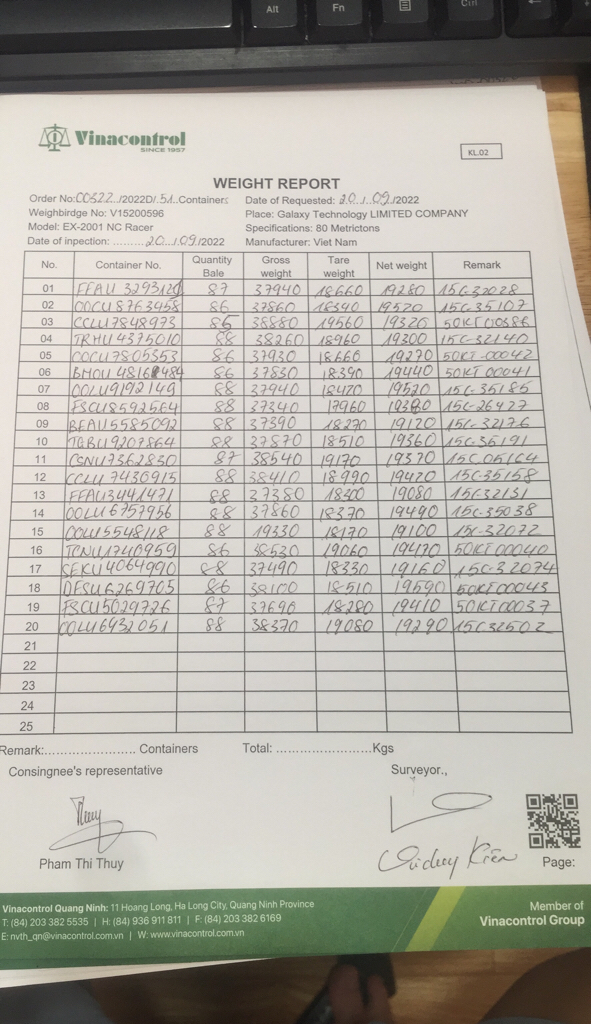 Alt
Fn
Ctrl
Vinacontrol
SINCE 1957
KL.02
WEIGHT REPORT
Order No:00322../2022D/.51..Containers Date of Requested: 20./.09/2022
Weighbirdge No: V15200596 Place: Galaxy Technology LIMITED COMPANY
Model: EX-2001 NC Racer Specifications: 80 Metrictons
Date of inpection: .........20../09/2022 Manufacturer: Viet Nam
No. Container No. Quantity Bale Gross weight Tare weight Net weight Remark
01 FFAU 3293120 87 37940 18660 19280 15C-32028
02 OOCU8763458 86 37860 18340 19520 15C-35107
03 CCLU7848973 85 38880 19560 19320 50KT00386
04 TRHU4375010 88 38260 18960 19300 15C-32140
05 COCU7805553 86 37930 18660 19270 50KT-00042
06 BMOU 4816 484 86 37830 18390 19440 50KT00041
07 OOLU9192149 88 37940 18420 19520 15C-35185
08 FSCU8592564 88 37340 17960 19380 15C-26427
09 BEAU5585092 88 37390 18270 19120 15C-32176
10 TGBU9207864 88 37870 18510 19360 15C-36191
11 CSNU7362830 87 38540 19170 19370 15C05164
12 CCLU7430915 88 38410 18990 19420 15C-35158
13 FFAU3441471 88 37380 18300 19080 15C32131
14 OOLU6757956 88 37860 18370 19490 15C-35038
15 OOLU5548118 88 19330 18170 19100 15C-32072
16 TCNU1740959 86 38530 19060 19470 50KT00040
17 SEKU4064990 88 37490 18330 19160 15C-32074
18 DFSU6269705 86 38100 18510 19590 50KT00043
19 FSCU5029726 87 37690 18280 19410 50KT00037
20 OOLU6932051 88 38370 19080 19290 15C32502
21
22
23
24
25
Remark:...................... Containers Total: ........................Kgs
Consingnee's representative Surveyor.,
Thuy
Pham Thi Thuy Page:
Vinacontrol Quang Ninh: 11 Hoang Long, Ha Long City, Quang Ninh Province
T: (84) 203 382 5535 | H: (84) 936 911 811 | F: (84) 203 382 6169
E: nvth_qn@vinacontrol.com.vn | W: www.vinacontrol.com.vn
Member of
Vinacontrol Group